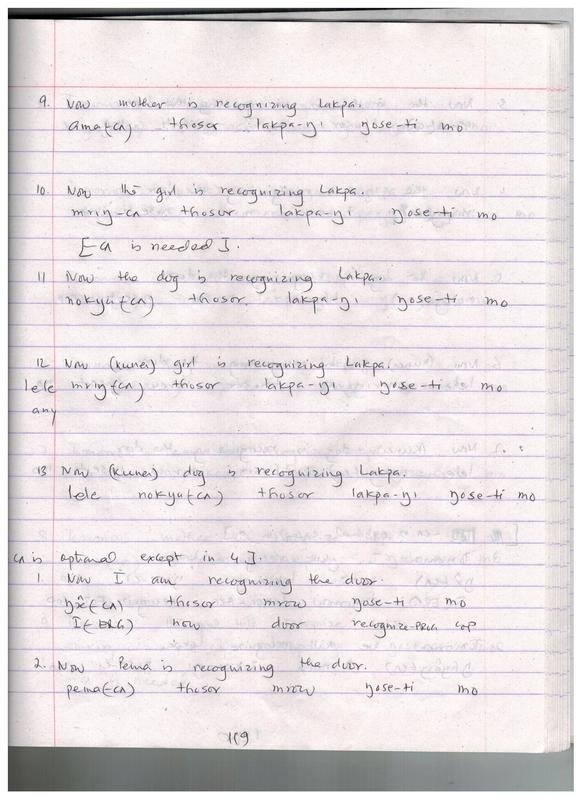 9. Now mother is recognizing Lakpa.
ama(-cʌ) thosor lakpa-ŋı ŋose-ti mo
10. Now the girl is recognizing Lakpa.
mriŋ-cʌ thosor lakpa-ŋı ŋose-ti mo
[-cʌ is needed].
11 Now the dog is recognizing Lakpa.
nokyu(-cʌ) thosor lakpa-ŋı ŋose-ti mo
12 Now (kunei) girl is recognizing Lakpa.
lele mriŋ(-cʌ) thosor lakpa-ŋı ŋose-ti mo
any
13 Now (kunei) dog is recognizing Lakpa.
lele nokyu(-cʌ) thosor lakpa-ŋı ŋose-ti mo
cʌ is optional except in 4].
1. Now I am recognizing the door.
(-cʌ) thosor mrow ŋose-ti mo
I(-ERG) now door recognize-PROG COP
2. Now Pema is recognizing the door.
pema(-cʌ) thosor mrow ŋose-ti mo
119